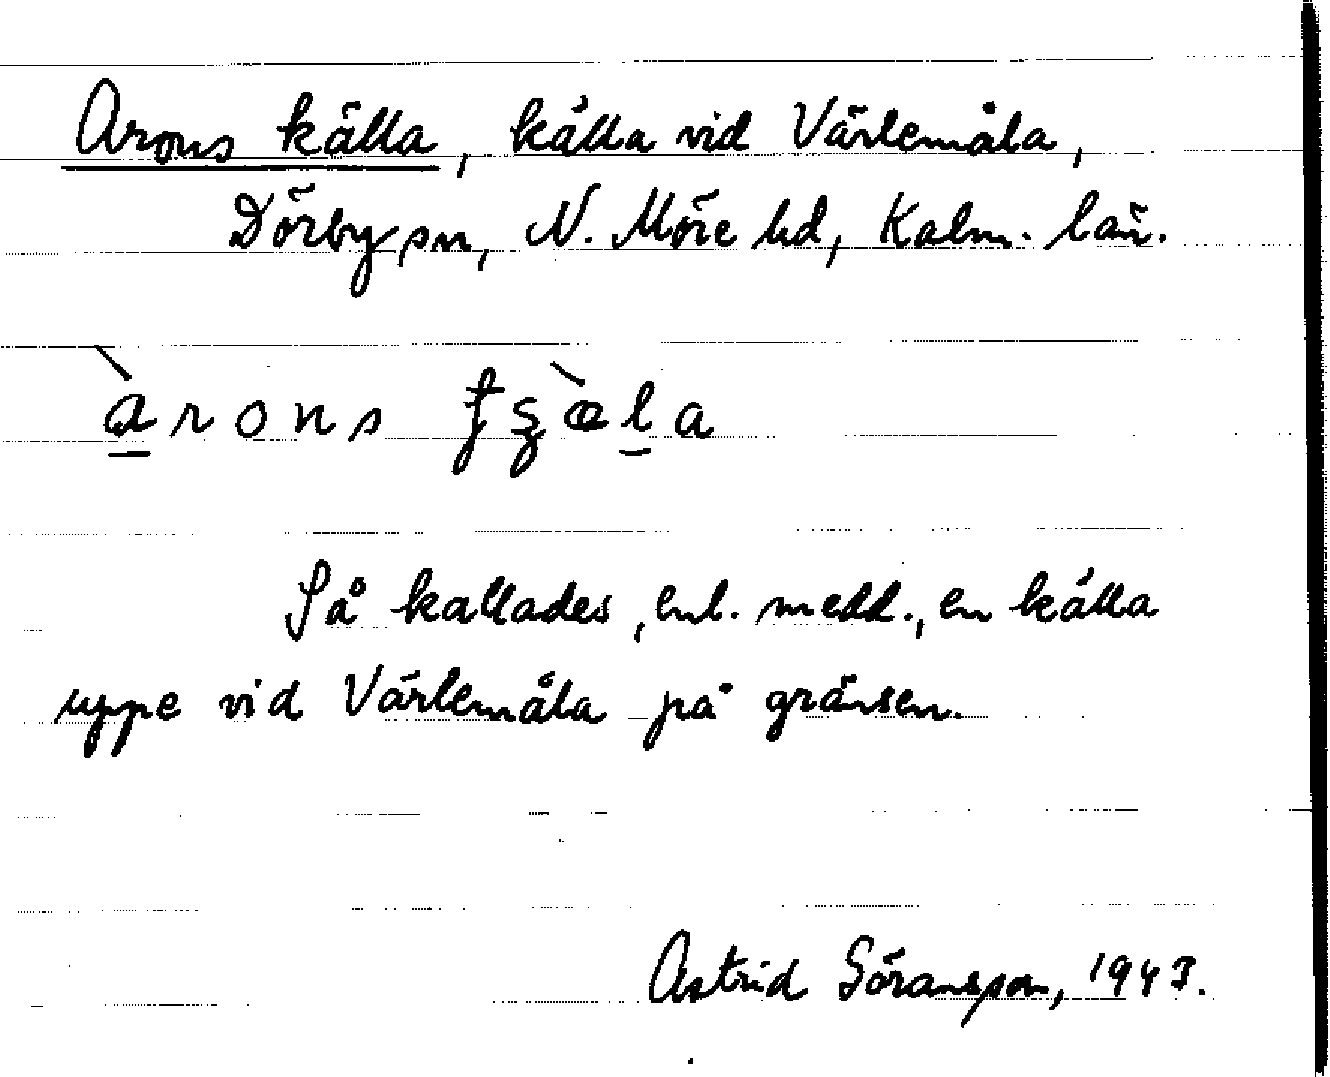 Arons källa, källa vid Värlemåla,
Dörby sn, N. Möre hd, Kalm. län.
àrons
Så kallades, enl. medd., en källa
uppe vid Värlemåla på gränsen.
Astrid Göransson, 1943.